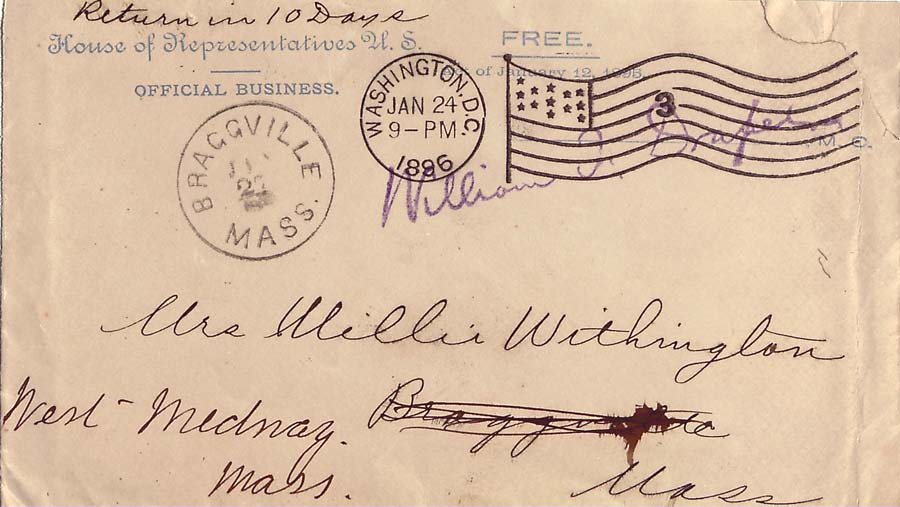 Return in 10 Days
House of Representatives U. S.
OFFICIAL BUSINESS.
FREE.
Act of January 12, 1895.
WASHINGTON, D.C.
JAN 24
9-PM
1896
3
William F. Draper
M. C.
BRAGGVILLE
MASS.
Mrs Millie Withington
Braggville
Mass
West Medway.
Mass.